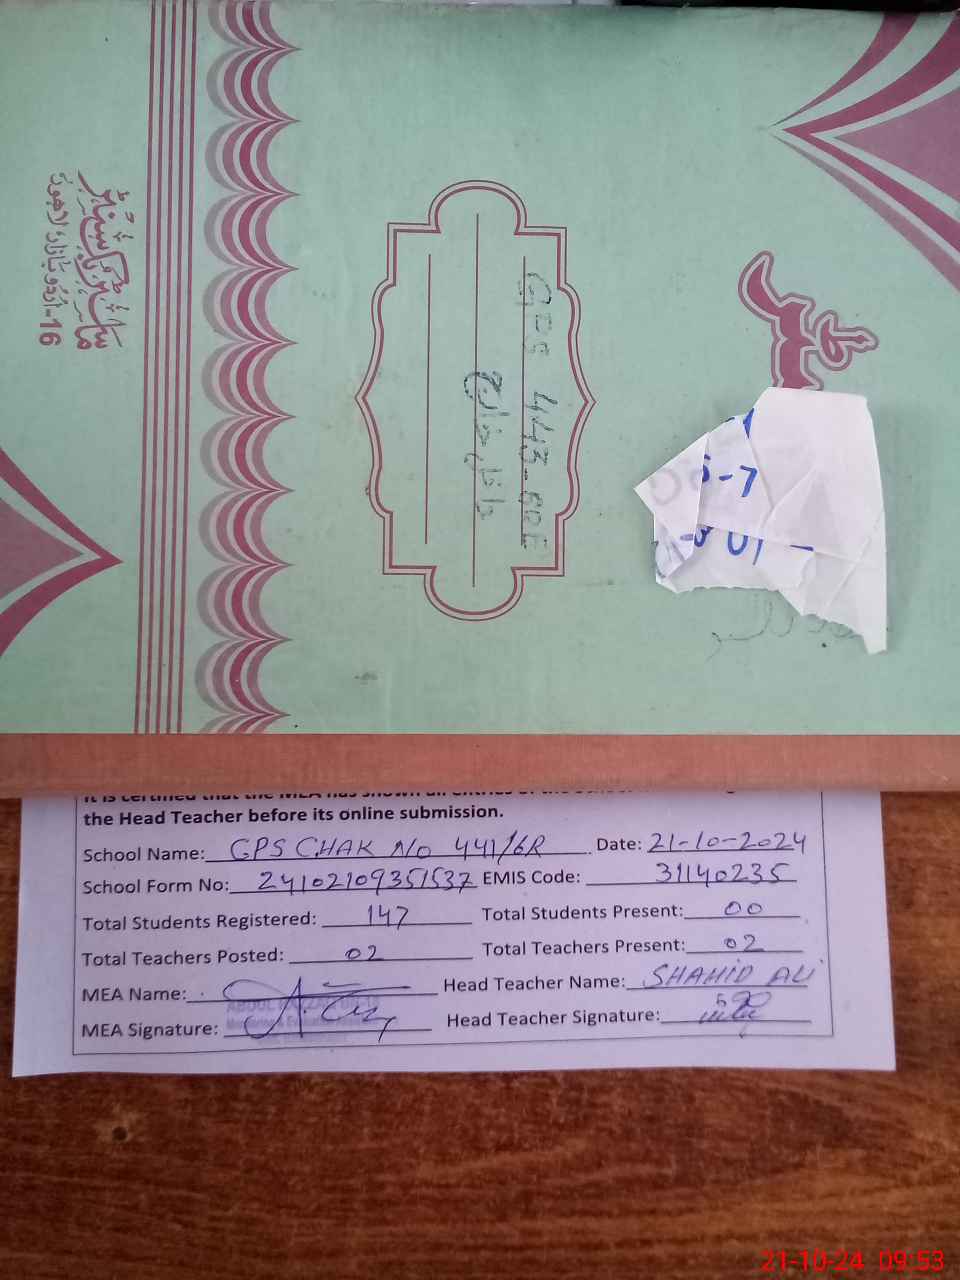 ماسٹر پبلشرز
16-اردو بازار لاہور
GPS 443-6R
داخل خارج
رجسٹر
5-7
the Head Teacher before its online submission.
School Name: GPS CHAK No 441/6R Date: 21-10-2024
School Form No: 24102109351537 EMIS Code: 31140235
Total Students Registered: 147 Total Students Present: 00
Total Teachers Posted: 02 Total Teachers Present: 02
MEA Name: Head Teacher Name: SHAHID ALI
MEA Signature: Head Teacher Signature:
21-10-24 09:53